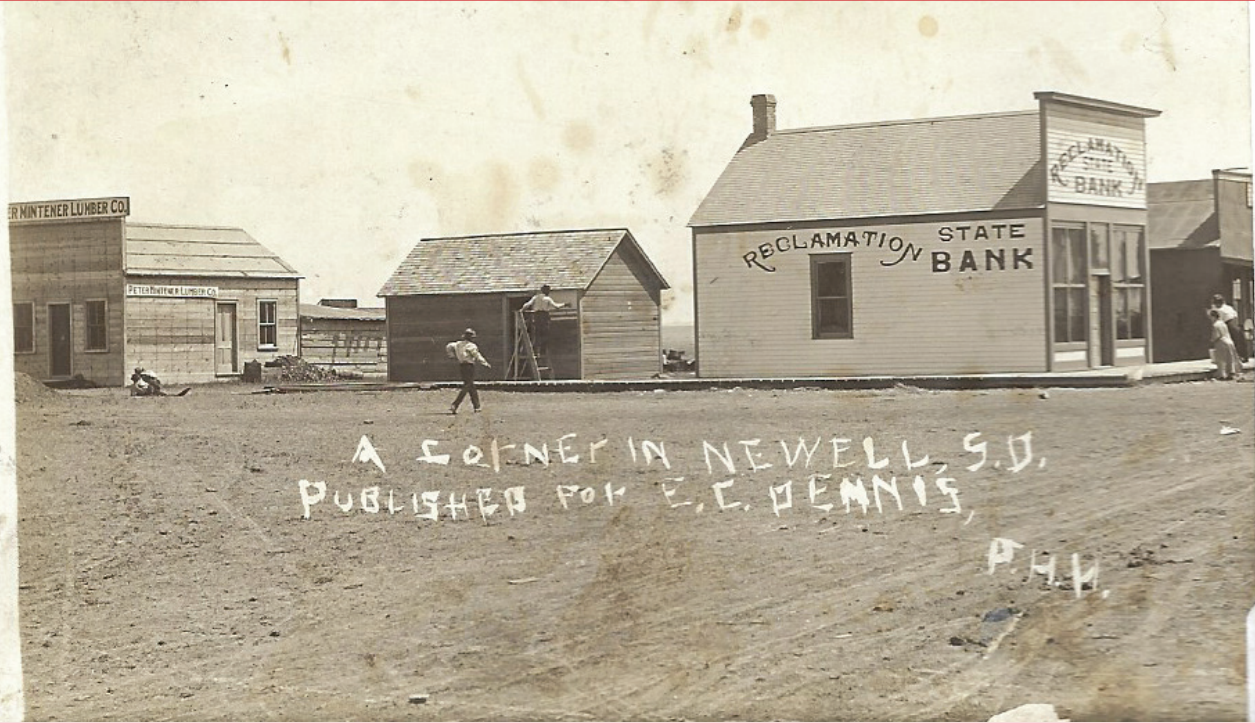 ER MINTENER LUMBER CO.
PETER MINTENER LUMBER CO.
RECLAMATION STATE
BANK
RECLAMATION
STATE
BANK
A CORNER IN NEWELL, S.D.
PUBLISHED FOR E.C. DENNIS,
P.H.H.